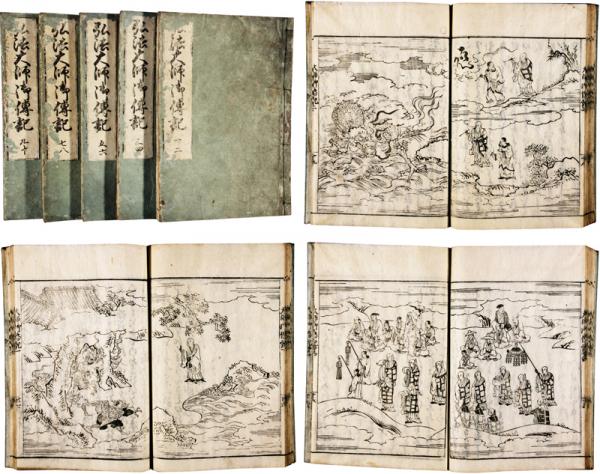 弘法大師御傳記 一二
弘法大師御傳記 三四
弘法大師御傳記 五六
弘法大師御傳記 七八
弘法大師御傳記 九十